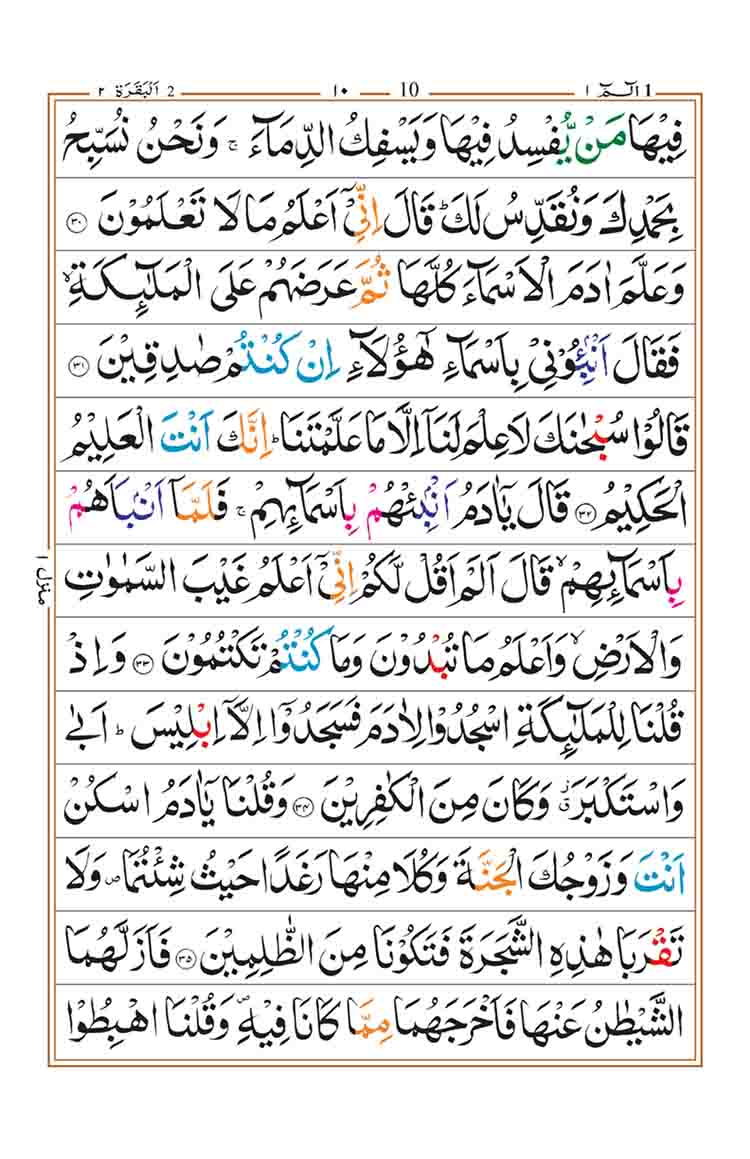 1 الٓمّٓ ١ 10 ١٠ 2 اَلْبَقَرَة ٢
فِيْهَا مَنْ يُّفْسِدُ فِيْهَا وَيَسْفِكُ الدِّمَآءَ ۚ وَنَحْنُ نُسَبِّحُ
بِحَمْدِكَ وَنُقَدِّسُ لَكَ ؕ قَالَ اِنِّىْۤ اَعْلَمُ مَا لَا تَعْلَمُوْنَ ۝٣٠
وَعَلَّمَ اٰدَمَ الْاَسْمَآءَ كُلَّهَا ثُمَّ عَرَضَهُمْ عَلَى الْمَلٰٓئِكَةِ ۙ
فَقَالَ اَنْۢبِـُٔوْنِىْ بِاَسْمَآءِ هٰٓؤُلَآءِ اِنْ كُنْتُمْ صٰدِقِيْنَ ۝٣١
قَالُوْا سُبْحٰنَكَ لَا عِلْمَ لَنَاۤ اِلَّا مَا عَلَّمْتَنَا ؕ اِنَّكَ اَنْتَ الْعَلِيْمُ
الْحَكِيْمُ ۝٣٢ قَالَ يٰۤاٰدَمُ اَنْۢبِئْهُمْ بِاَسْمَآئِهِمْ ۚ فَلَمَّاۤ اَنْۢبَاَهُمْ
بِاَسْمَآئِهِمْ ۙ قَالَ اَلَمْ اَقُلْ لَّكُمْ اِنِّىْۤ اَعْلَمُ غَيْبَ السَّمٰوٰتِ
وَالْاَرْضِ ۙ وَاَعْلَمُ مَا تُبْدُوْنَ وَمَا كُنْتُمْ تَكْتُمُوْنَ ۝٣٣ وَاِذْ
قُلْنَا لِلْمَلٰٓئِكَةِ اسْجُدُوْا لِاٰدَمَ فَسَجَدُوْۤا اِلَّاۤ اِبْلِيْسَ ؕ اَبٰى
وَاسْتَكْبَرَ ۗ وَكَانَ مِنَ الْكٰفِرِيْنَ ۝٣٤ وَقُلْنَا يٰۤاٰدَمُ اسْكُنْ
اَنْتَ وَزَوْجُكَ الْجَنَّةَ وَكُلَا مِنْهَا رَغَدًا حَيْثُ شِئْتُمَا ۪ وَلَا
تَقْرَبَا هٰذِهِ الشَّجَرَةَ فَتَكُوْنَا مِنَ الظّٰلِمِيْنَ ۝٣٥ فَاَزَلَّهُمَا
الشَّيْطٰنُ عَنْهَا فَاَخْرَجَهُمَا مِمَّا كَانَا فِيْهِ ۪ وَقُلْنَا اهْبِطُوْا
منزل ١